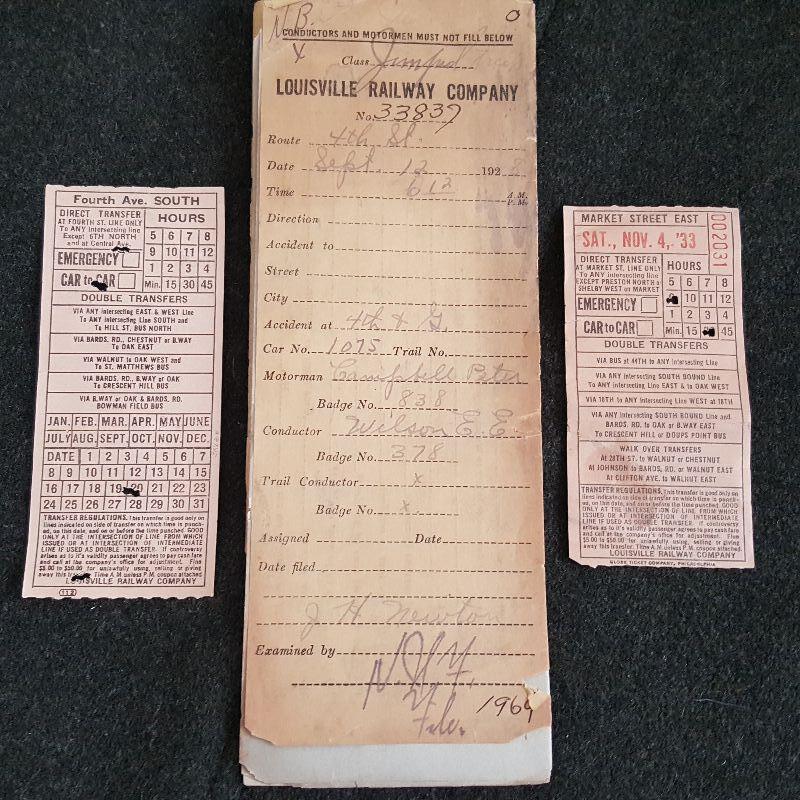 Fourth Ave. SOUTH
DIRECT TRANSFER
AT FOURTH ST. LINE ONLY
To ANY Intersecting line
Except 6TH NORTH
and at Central Ave.
HOURS
5 6 7 8
9 10 11 12
1 2 3 4
Min. 15 30 45
EMERGENCY
CAR to CAR
DOUBLE TRANSFERS
VIA ANY Intersecting EAST & WEST Line
To ANY Intersecting Line SOUTH and
To HILL ST. BUS NORTH
VIA BARDS. RD., CHESTNUT or B.WAY
To OAK EAST
VIA WALNUT to OAK WEST and
To ST. MATTHEWS BUS
VIA BARDS. RD. B.WAY or OAK
To CRESCENT HILL BUS
VIA B.WAY or OAK & BARDS. RD.
BOWMAN FIELD BUS
JAN. FEB. MAR. APR. MAY JUNE
JULY AUG. SEPT. OCT. NOV. DEC.
DATE 1 2 3 4 5 6 7
8 9 10 11 12 13 14 15
16 17 18 19 20 21 22 23
24 25 26 27 28 29 30 31
TRANSFER REGULATIONS. This transfer is good only on
lines indicated on side of transfer on which time is punch-
ed, on this date, and on or before the time punched. GOOD
ONLY AT THE INTERSECTION OF LINE FROM WHICH
ISSUED OR AT INTERSECTION OF INTERMEDIATE
LINE IF USED AS DOUBLE TRANSFER. If controversy
arises as to it's validity passenger agrees to pay cash fare
and call at the company's office for adjustment. Fine
$5.00 to $50.00 for unlawfully using, selling or giving
away this Time A.M unless P.M. coupon attached
LOUISVILLE RAILWAY COMPANY
N.B.
O
CONDUCTORS AND MOTORMEN MUST NOT FILL BELOW
X
Class Jumped
LOUISVILLE RAILWAY COMPANY
No. 33837
Route 4th St.
Date Sept. 12 1928
Time 6 12 A.M. P.M.
Direction
Accident to
Street
City
Accident at 4th & G.
Car No. 1075 Trail No.
Motorman Campbell
Badge No. 838
Conductor Wilson E. E.
Badge No. 378
Trail Conductor x
Badge No. x
Assigned Date
Date filed
J H Newton
Examined by
File.
1969
MARKET STREET EAST
SAT., NOV. 4, '33
002031
DIRECT TRANSFER
AT MARKET ST. LINE ONLY
To ANY Intersecting line
EXCEPT PRESTON NORTH &
SHELBY WEST on MARKET
HOURS
5 6 7 8
10 11 12
1 2 3 4
Min. 15 45
EMERGENCY
CAR to CAR
DOUBLE TRANSFERS
VIA BUS at 44TH to ANY Intersecting Line
VIA ANY Intersecting SOUTH BOUND Line
To ANY Intersecting LINE EAST & to OAK WEST
VIA 18TH to ANY Intersecting Line WEST at 18TH
VIA ANY Intersecting SOUTH BOUND Line and
BARDS. RD. to OAK or B.WAY EAST
To CRESCENT HILL or DOUPS POINT BUS
WALK OVER TRANSFERS
At 28TH ST. to WALNUT or CHESTNUT
At JOHNSON to BARDS. RD. or WALNUT EAST
At CLIFTON AVE. to WALNUT EAST
TRANSFER REGULATIONS. This transfer is good only on
lines indicated on side of transfer on which time is punch-
ed, on this date, and on or before the time punched. GOOD
ONLY AT THE INTERSECTION OF LINE FROM WHICH
ISSUED OR AT INTERSECTION OF INTERMEDIATE
LINE IF USED AS DOUBLE TRANSFER. If controversy
arises as to it's validity passenger agrees to pay cash fare
and call at the company's office for adjustment. Fine
$5.00 to $50.00 for unlawfully using, selling or giving
away this transfer. Time A.M. unless P.M. coupon attached
LOUISVILLE RAILWAY COMPANY
GLOBE TICKET COMPANY, PHILADELPHIA